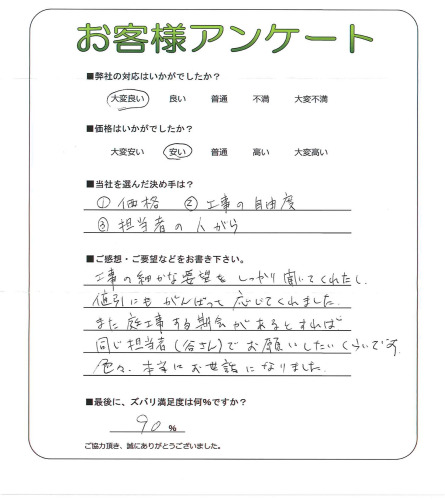 お客様アンケート
■弊社の対応はいかがでしたか？
大変良い 良い 普通 不満 大変不満
■価格はいかがでしたか？
大変安い 安い 普通 高い 大変高い
■当社を選んだ決め手は？
① 価格 ② 工事の自由度
③ 担当者の人がら
■ご感想・ご要望などをお書き下さい。
工事の細かな要望をしっかり聞いてくれたし、
値引にもがんばって応じてくれました。
また庭工事する機会があるとすれば
同じ担当者(谷さん)でお願いしたいくらいです。
色々、本当にお世話になりました。
■最後に、ズバリ満足度は何%ですか？
90 %
ご協力頂き、誠にありがとうございました。